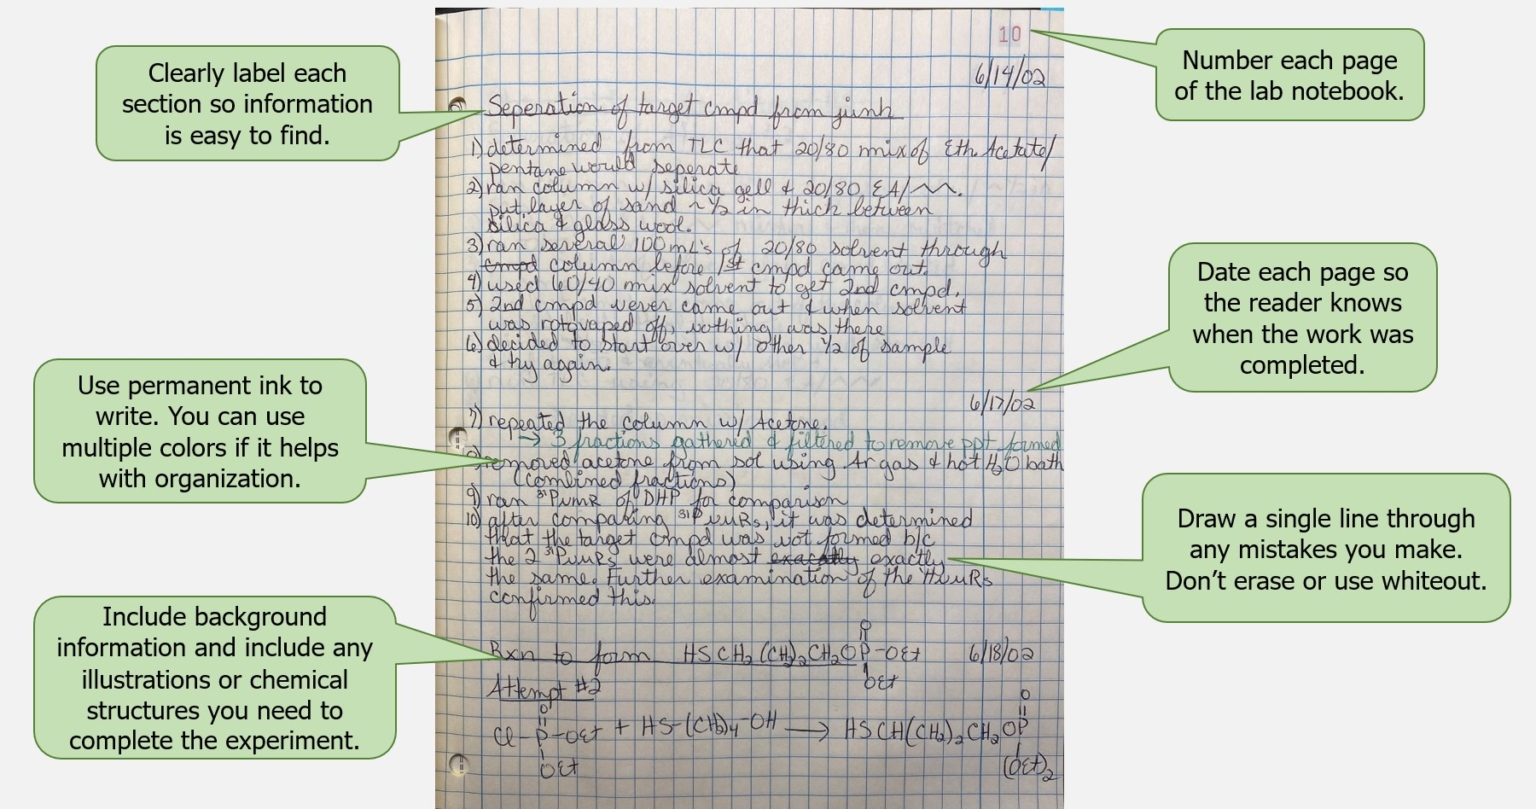 Clearly label each
section so information
is easy to find.
Use permanent ink to
write. You can use
multiple colors if it helps
with organization.
Include background
information and include any
illustrations or chemical
structures you need to
complete the experiment.
10
6/14/02
Seperation of target cmpd from junk
1) determined from TLC that 20/80 mix of Eth Acetate/
pentane would seperate
2) ran column w/ silica gell & 20/80 EA/
put layer of sand ~ 1/2 in thick between
silica & glass wool.
3) ran several 100 mL's of 20/80 solvent through
cmpd column before 1st cmpd came out.
4) used 60/40 mix solvent to get 2nd cmpd.
5) 2nd cmpd never came out & when solvent
was rotovaped off, nothing was there
6) decided to start over w/ other 1/2 of sample
& try again.
6/17/02
7) repeated the column w/ Acetone.
→ 3 fractions gathered & filtered to remove ppt formed
8) removed acetone from sol using Ar gas & hot H2O bath
(combined fractions)
9) ran 31P NMR of DHP for comparison
10) after comparing 31P NMRs, it was determined
that the target cmpd was not formed b/c
the 2 31P NMRs were almost exactly
the same. Further examination of the NMRs
confirmed this.
Rxn to form HSCH2(CH2)2CH2OP-OEt 6/18/02
O
OEt
Attempt #2
O
Cl-P-OEt + HS-(CH2)4-OH → HSCH(CH2)2CH2OP
OEt
O
(OEt)2
Number each page
of the lab notebook.
Date each page so
the reader knows
when the work was
completed.
Draw a single line through
any mistakes you make.
Don't erase or use whiteout.